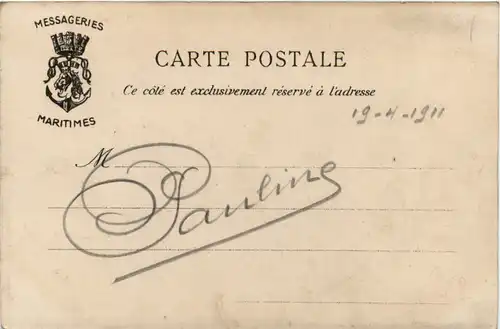 MESSAGERIES
MARITIMES
CARTE POSTALE
Ce côté est exclusivement réservé à l'adresse
19-4-1911
M
Pauline